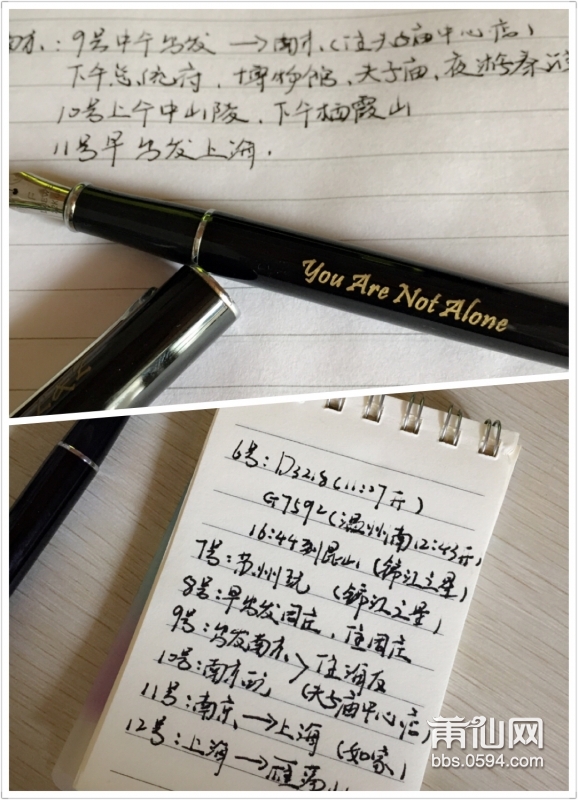 南京:9号中午出发→南京(住夫子庙中心店)
下午总统府、博物馆、夫子庙、夜游秦淮
10号上午中山陵、下午栖霞山
11号早出发上海.
You Are Not Alone
6号:D3218(11:27开)
G7592(温州南12:43开)
16:44到昆山(锦江之星)
7号:苏州玩(锦江之星)
8号:早出发周庄,住周庄
9号:出发南京>住浦友
10号:南京玩(夫子庙中心店)
11号:南京→上海(如家)
12号:上海→雁荡山
莆仙网
bbs.0594.com